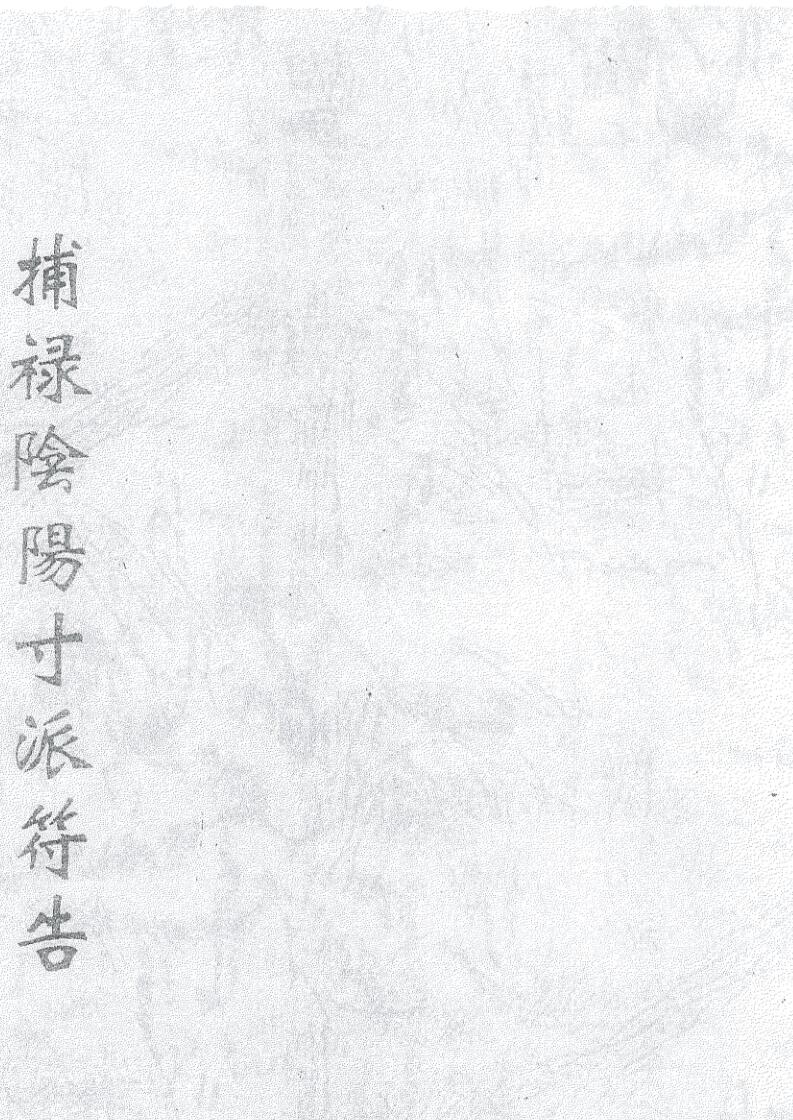 捕禄陰陽寸派符告